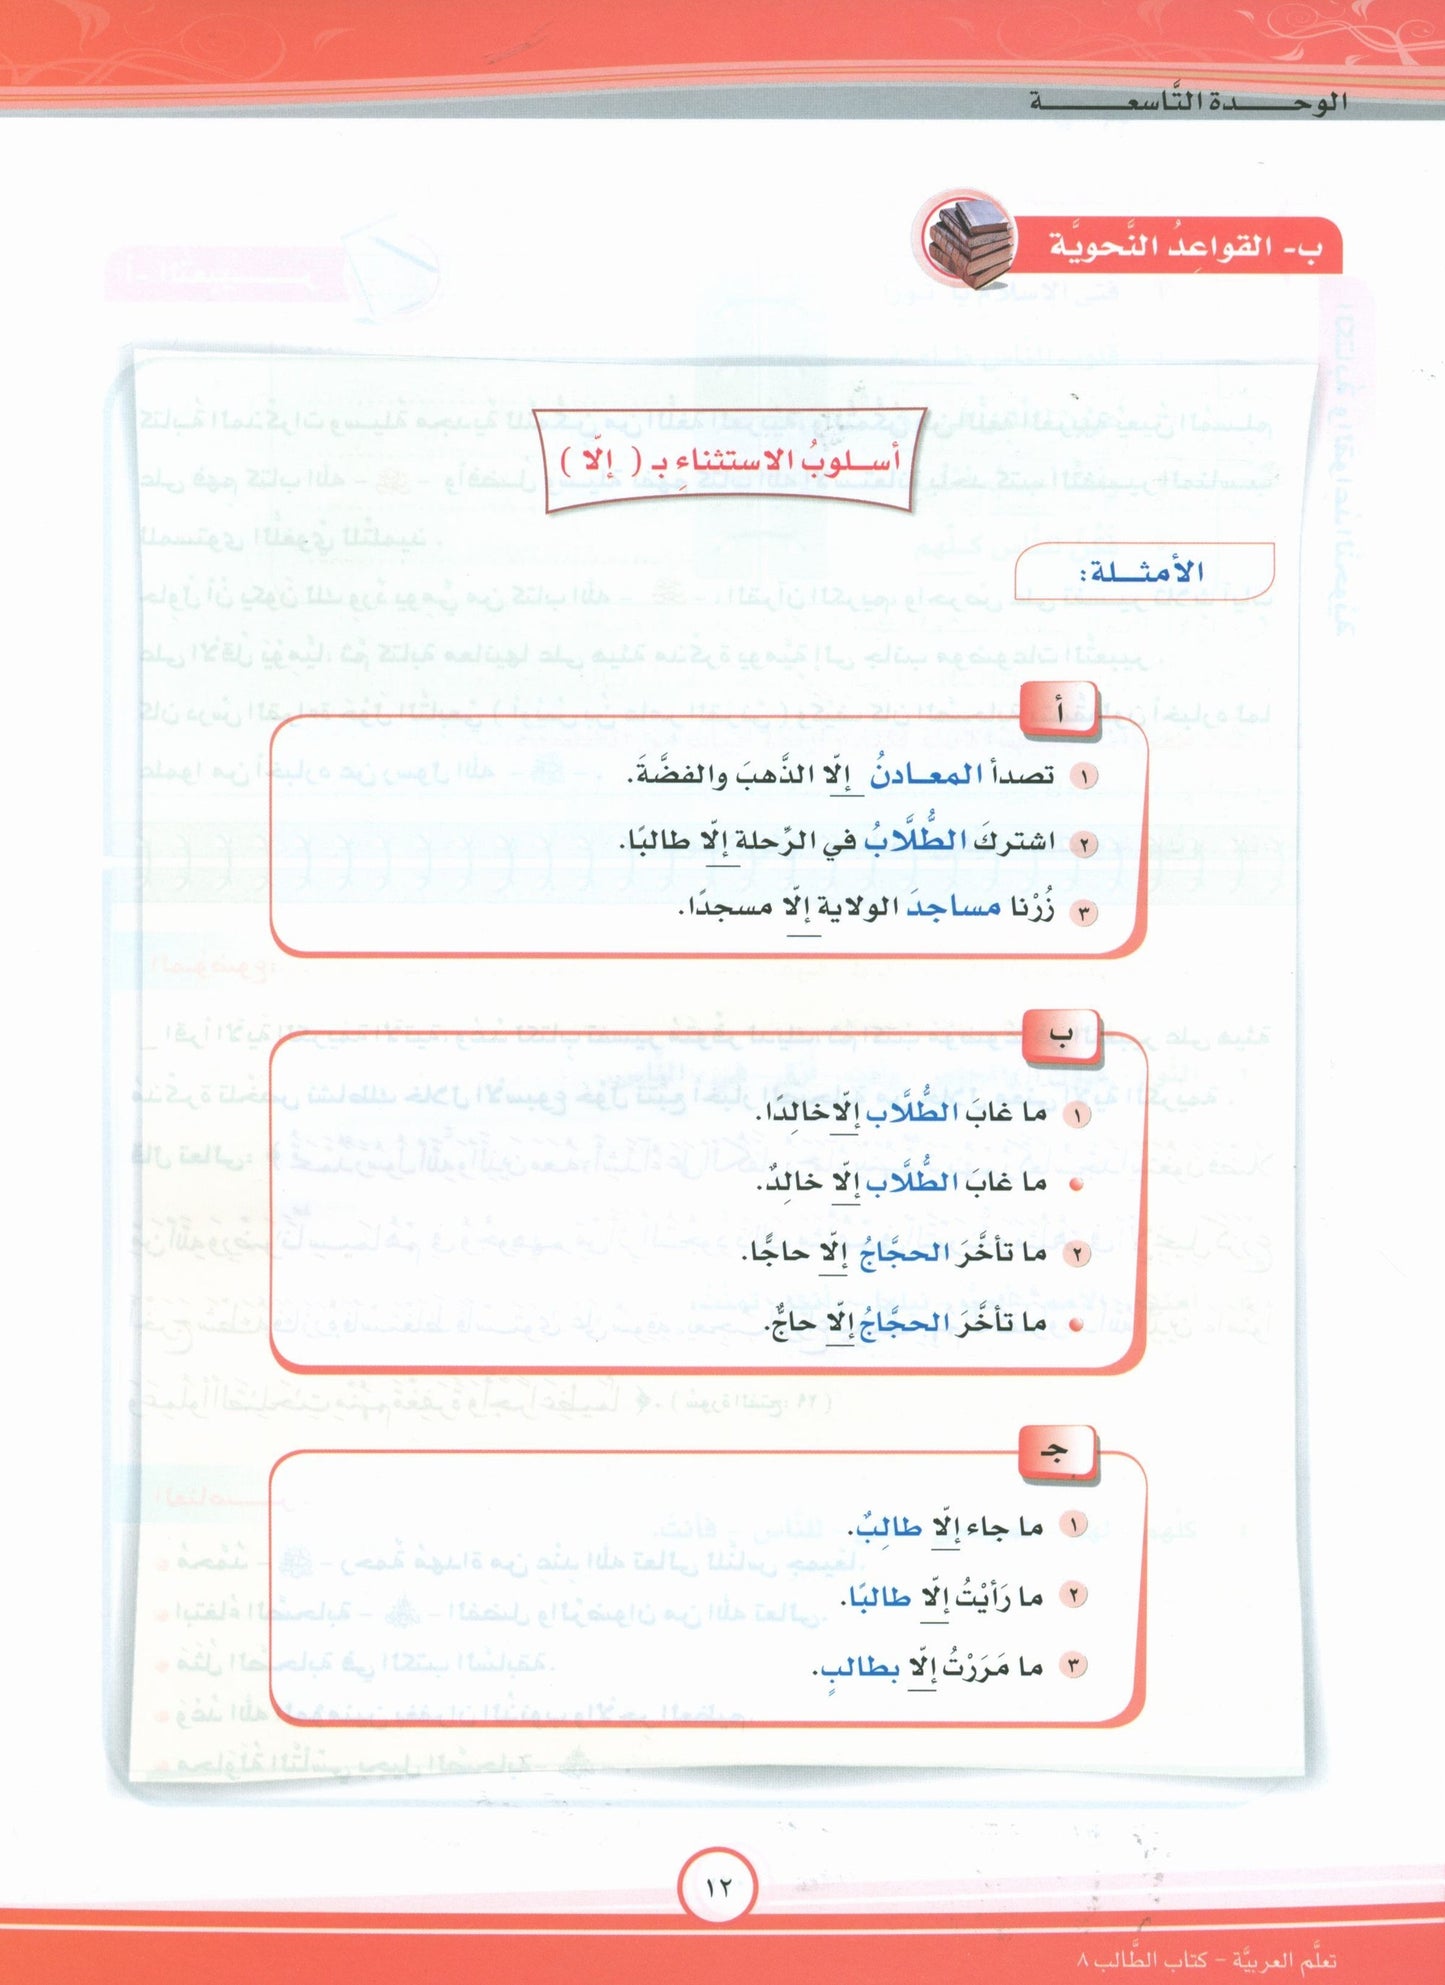 الوحدة التَّاسعة
ب- القواعِدُ النَّحويَّة
أسلوبُ الاستثناءِ بـ ( إلّا )
الأمثلة:
أ
١ تصدأ المعادنُ إلّا الذَّهبَ والفضَّةَ.
٢ اشتركَ الطُّلَّابُ في الرِّحلة إلّا طالبًا.
٣ زُرْنا مساجدَ الولاية إلّا مسجدًا.
ب
١ ما غابَ الطُّلَّاب إلّا خالِدًا.
• ما غابَ الطُّلَّاب إلّا خالِدٌ.
٢ ما تأخَّرَ الحجَّاجُ إلّا حاجًّا.
• ما تأخَّرَ الحجَّاجُ إلّا حاجٌّ.
جـ
١ ما جاء إلّا طالِبٌ.
٢ ما رَأيْتُ إلّا طالبًا.
٣ ما مَرَرْتُ إلّا بطالبٍ.
١٢
تعلَّم العربيَّة - كتاب الطَّالب ٨